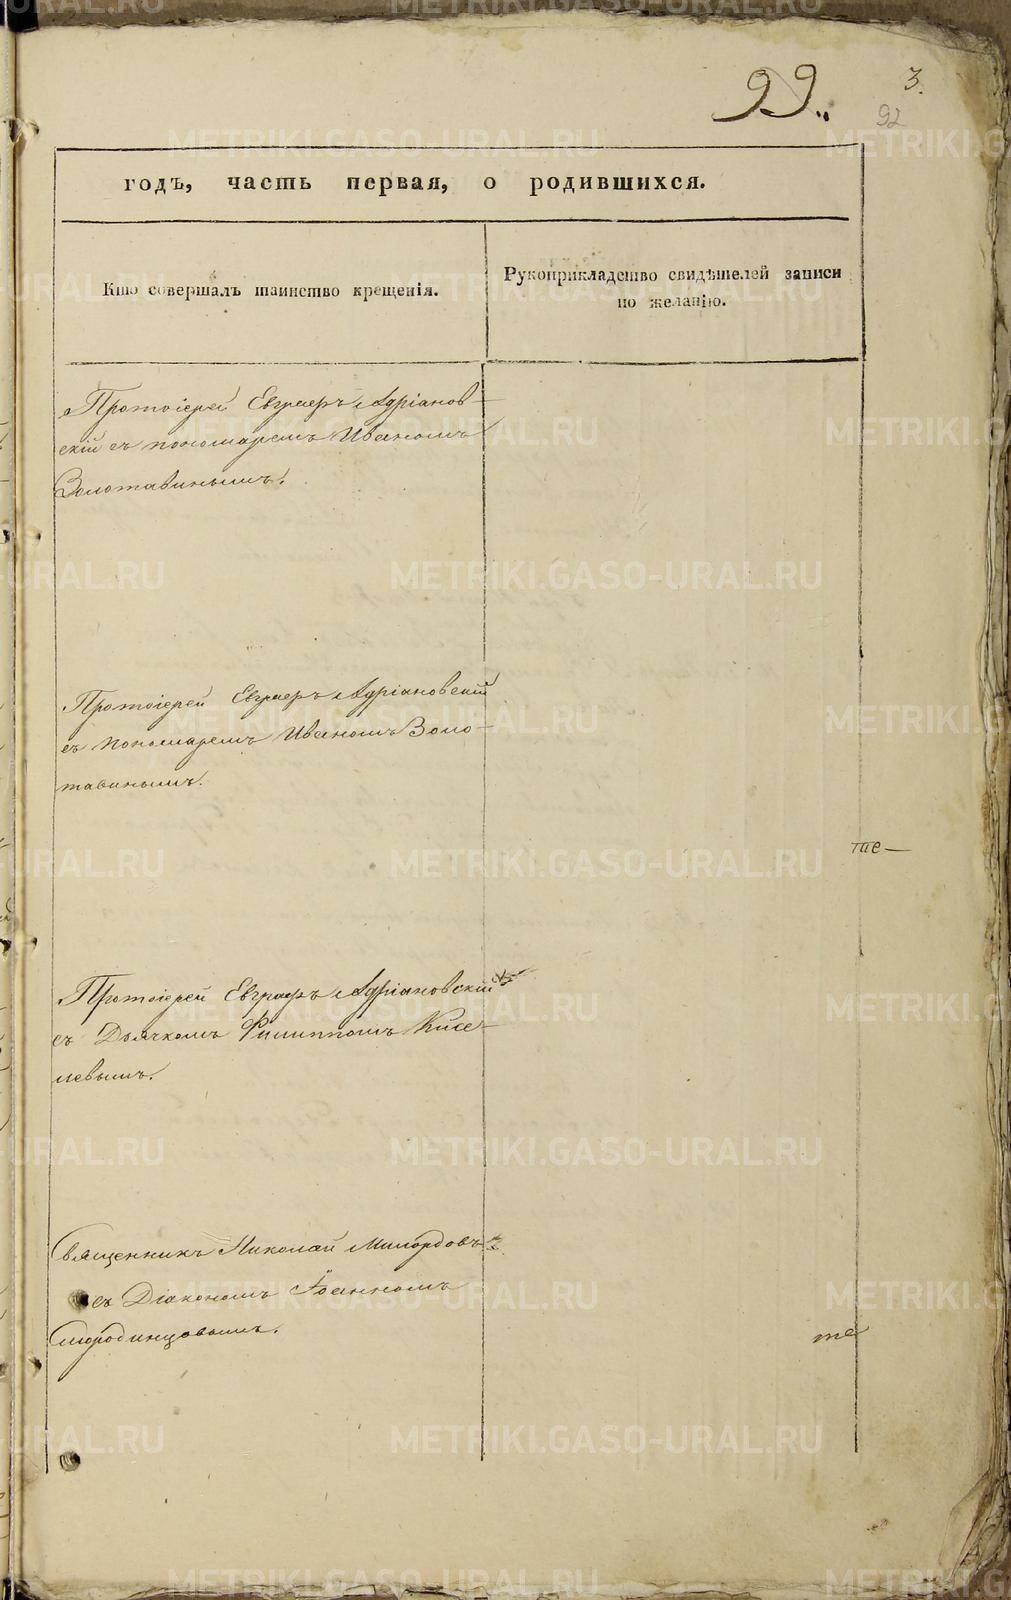 99.
3.
92
годъ, часть первая, о родившихся.
Кто совершалъ таинство крещенія.
Рукоприкладство свидѣтелей записи
по желанію.
Протоіерей Евграфъ Адріанов-
скій съ пономаремъ Иваномъ
Золотавинымъ.
Протоіерей Евграфъ Адріановскій
съ пономаремъ Иваномъ Золо-
тавинымъ.
те-
Протоіерей Евграфъ Адріановскій
съ Дьячкомъ Филиппомъ Кисе-
левымъ.
Священникъ Николай Милордовъ
съ Діакономъ Іоанномъ
Смородинцовымъ.
те
METRIKI.GASO-URAL.RU